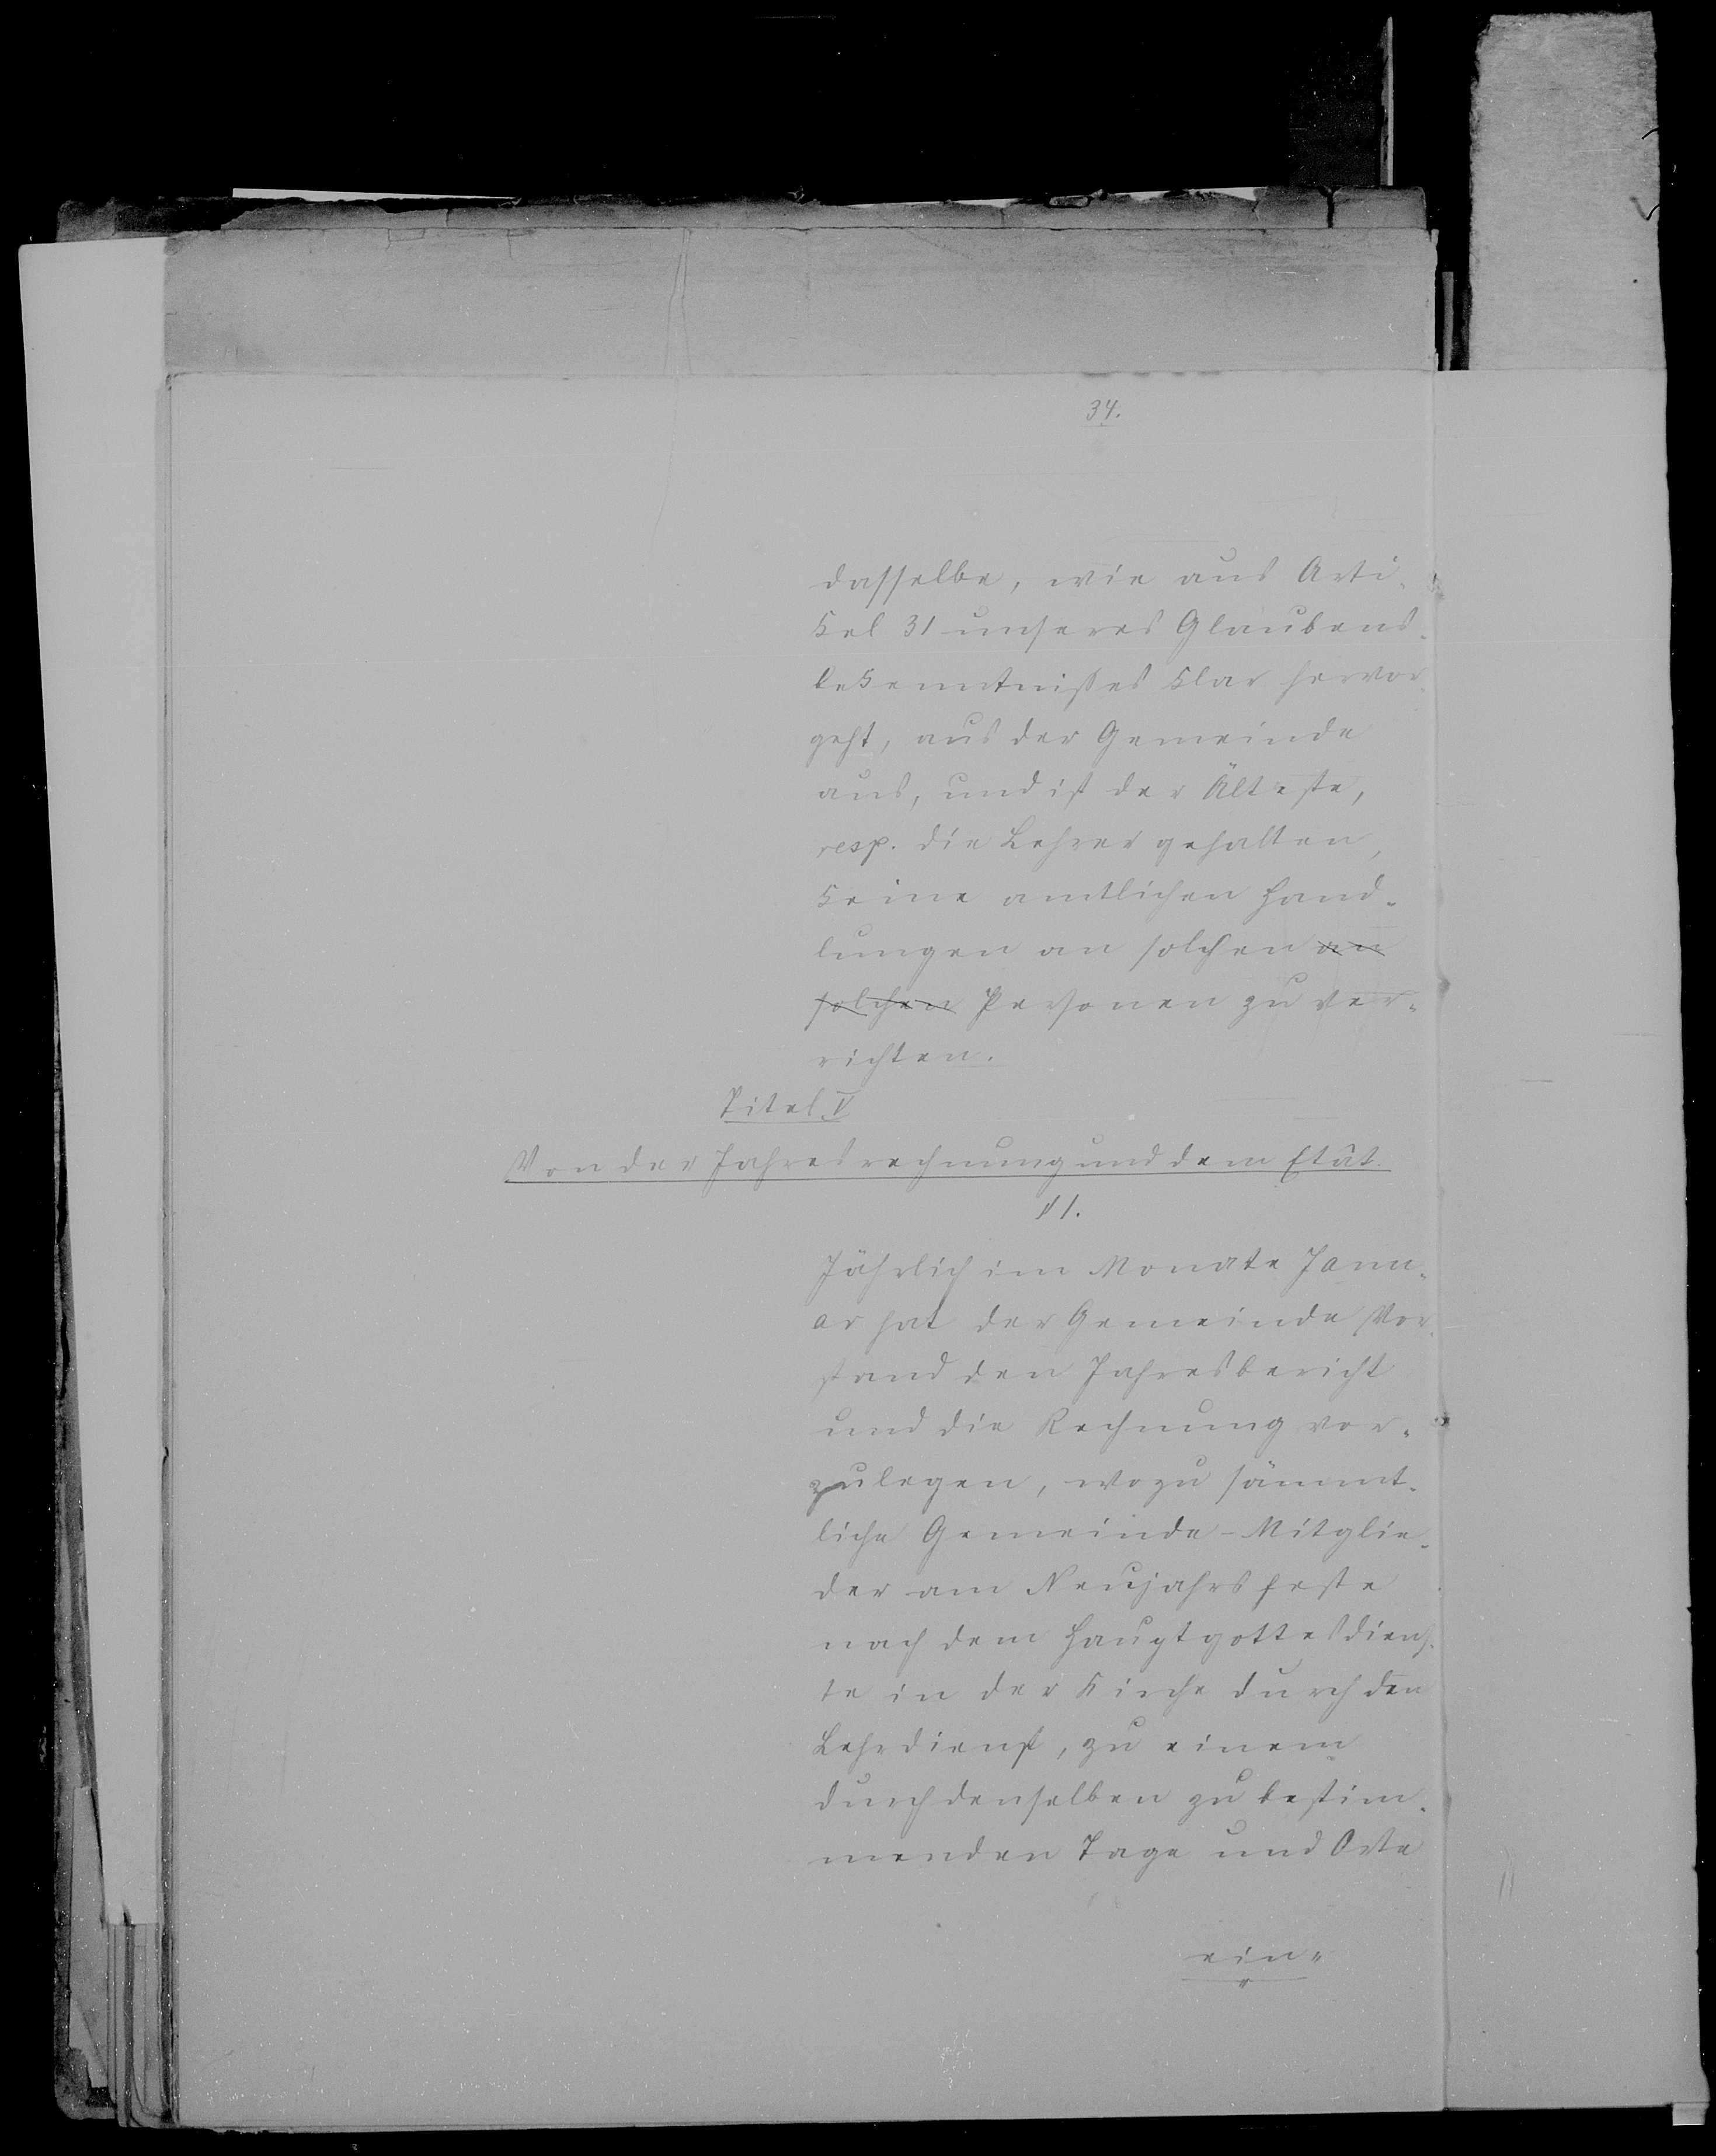 34.
dasselbe, wie aus Arti-
kel 31 unseres Glaubens-
bekenntnißes klar hervor-
geht, aus der Gemeinde
aus, und ist der Älteste,
resp. die Lehrer gehalten,
keine amtlichen Hand-
lungen an solchen an
solchen Personen zu ver-
richten.
Titel V
Von der Jahresrechnung und dem Etât.
§ 1.
Jährlich im Monate Janu-
ar hat der Gemeinde Vor-
stand den Jahresbericht
und die Rechnung vor-
zulegen, wozu sämmt-
liche Gemeinde-Mitglie-
der am Neujahrsfeste
nach dem Hauptgottesdiens-
te in der Kirche durch den
Lehrdienst, zu einem
durch denselben zu bestim-
menden Tage und Orte
ein-